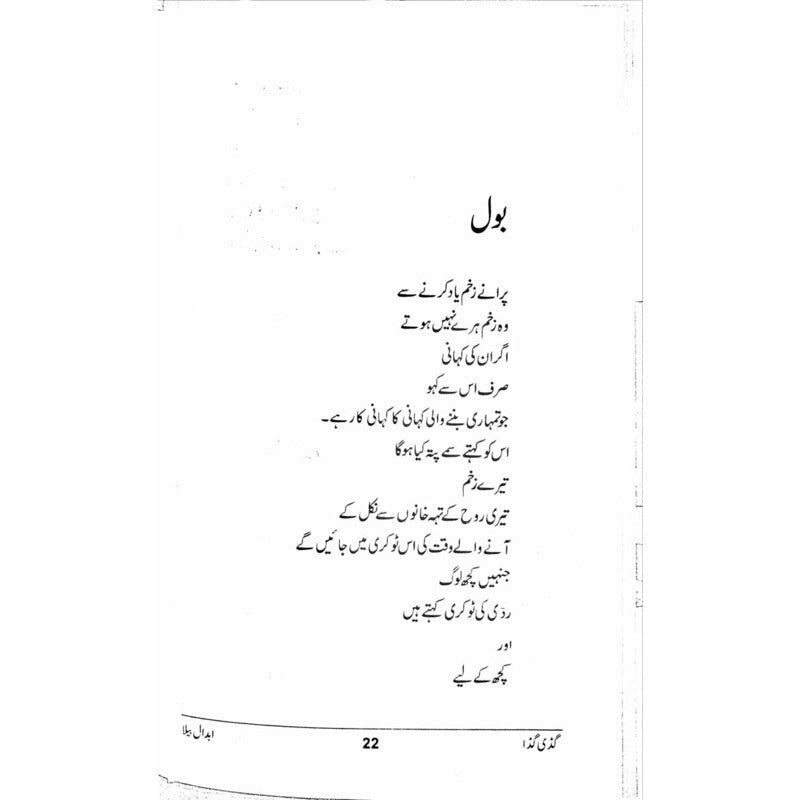 بول
پرانے زخم یاد کرنے سے
وہ زخم ہرے نہیں ہوتے
اگر ان کی کہانی
صرف اس سے کہو
جو تمہاری بننے والی کہانی کا کہانی کار ہے۔
اس کو کہتے سمے پتہ کیا ہوگا
تیرے زخم
تیری روح کے تہہ خانوں سے نکل کے
آنے والے وقت کی اس ٹوکری میں جائیں گے
جنہیں کچھ لوگ
ردّی کی ٹوکری کہتے ہیں
اور
کچھ کے لیے
گڈی گڈا 22 ابدال بیلا